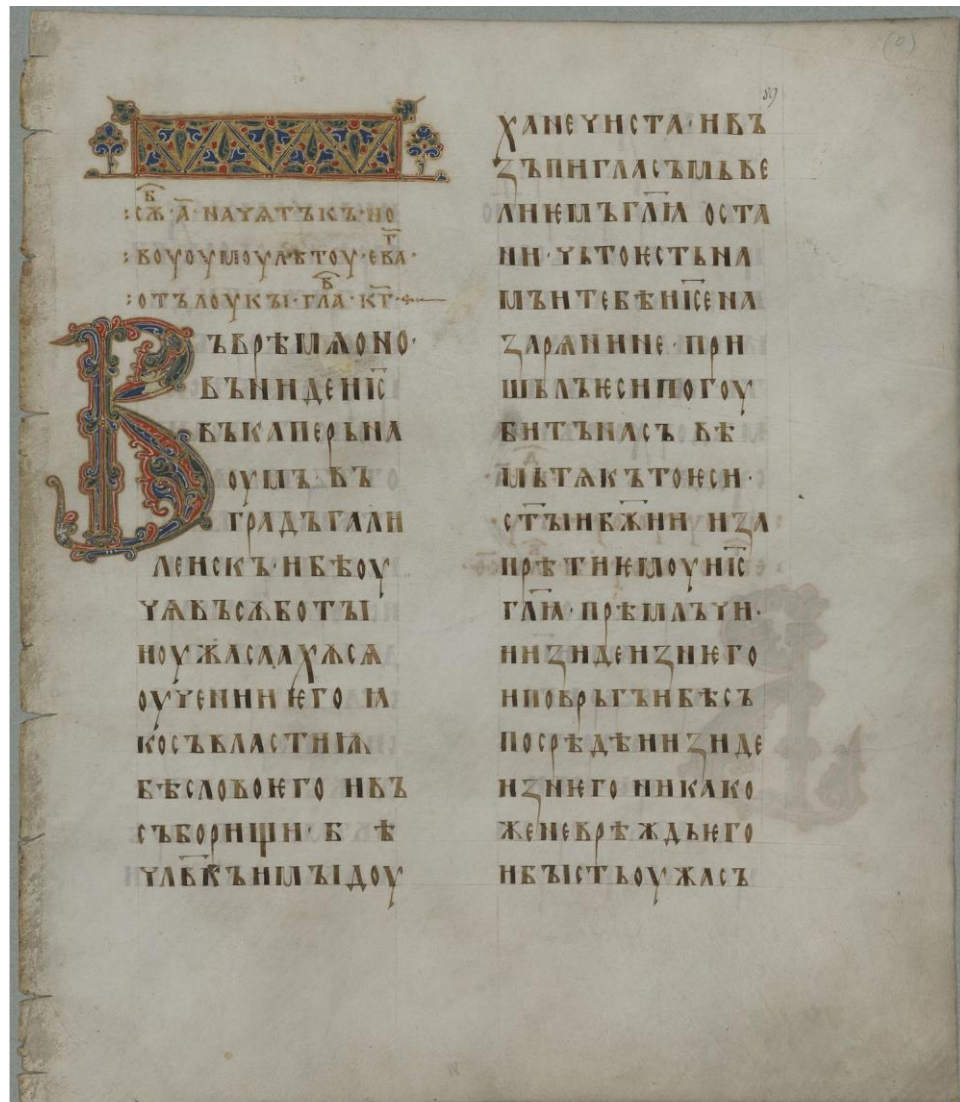 сѫб҃ · а҃ · начѧтъкъ · но
воуоумоу лѣтоу · ева҃г ·
отъ лоукꙑ · гла҃в · к҃г ·
Въ врѣмѧ оно ·
въниде и҃с
въ каперьна
оумъ · въ
градъ гали
леискъ · и бѣ оу
чѧ въ сѫботꙑ
и оужасаахѫсѧ
оучении ѥго ꙗ
ко съ властиѭ
бѣ слово ѥго и въ
съборищи · бѣ
чл҃вкъ имꙑ доу
89
ха нечиста · и въ
зъпи гласъмь ве
лиѥмъ гл҃ѧ оста
ни · чьто ѥсть на
мъ и тебѣ і҃се на
зарѧнине · при
шьлъ ѥси погоу
битъ насъ вѣ
мь тѧ къто ѥси ·
ст҃ꙑи б҃жии и за
прѣти ѥмоу и҃с
гл҃ѧ · прѣмлъчи ·
и изиде из него
и повръгъ и бѣсъ
посрѣдѣ и изиде
из него никако
же не врѣждь ѥго
и бꙑсть оужасъ